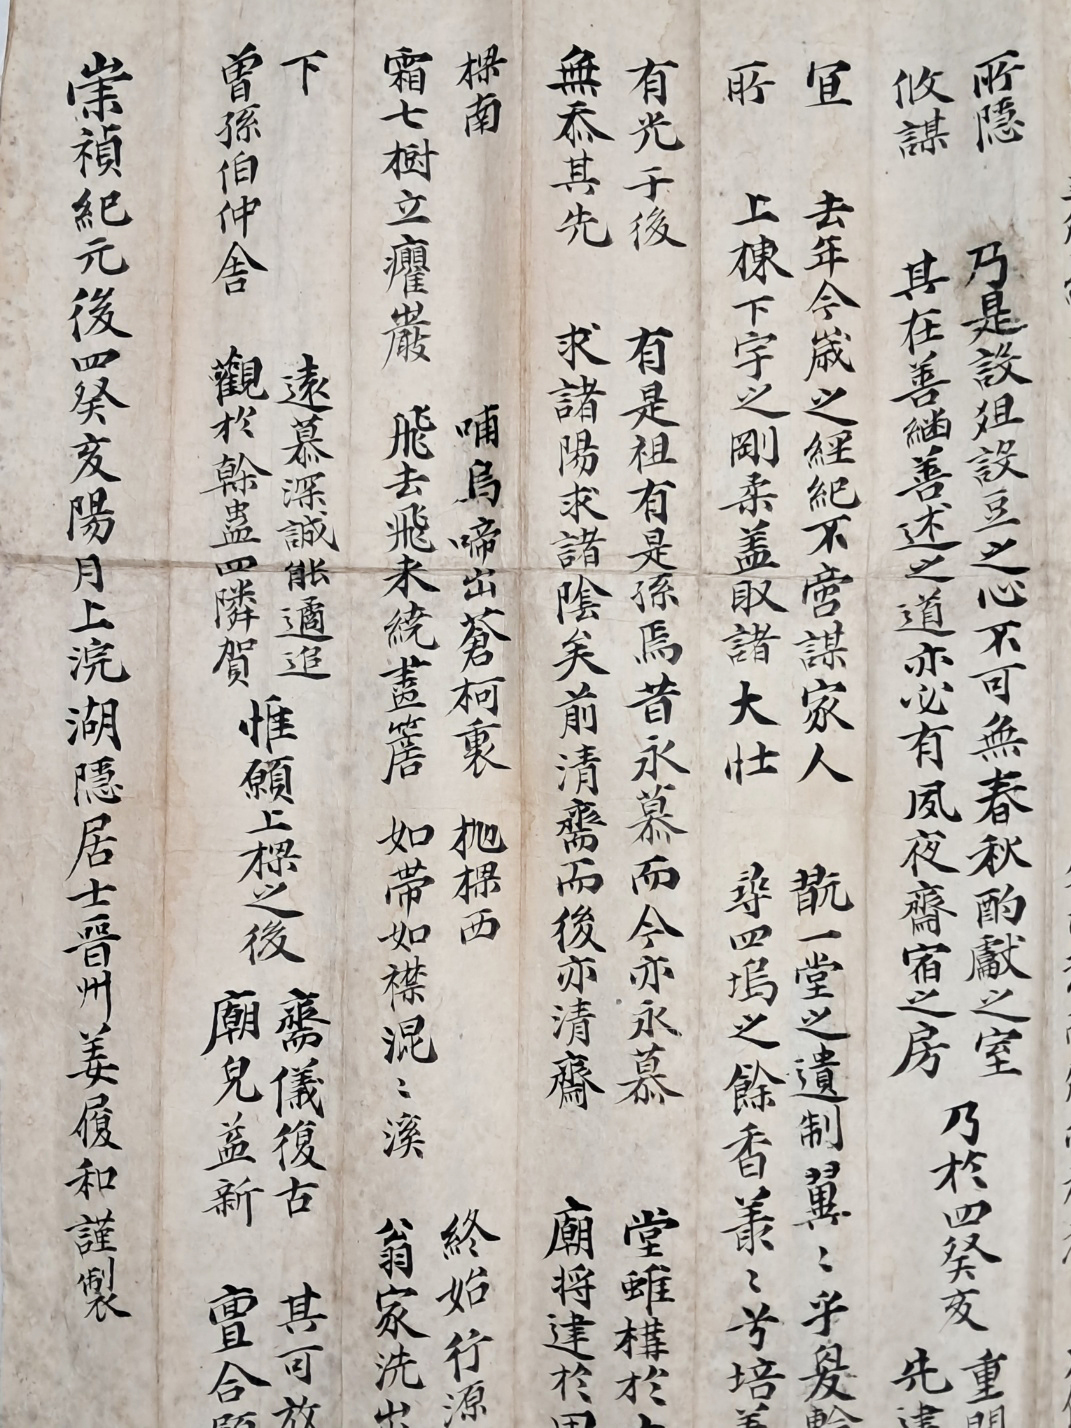 所隱 乃是設俎設豆之心不可無春秋酌獻之室
攸謀 其在善繼善述之道亦必有夙夜齋宿之房
乃於四癸亥
重
先建
宜 去年今歲之經紀不啻謀家人 翫一堂之遺制翼〻乎
所 上棟下宇之剛柔盖取諸大壯 尋四塢之餘香叢〻兮培
有光于後 有是祖有是孫焉昔永慕而今亦永慕 堂雖構於
無忝其先 求諸陽求諸陰矣前清齋而後亦清齋 廟将建於
樑南 哺烏啼出蒼柯裏 抛樑西 終始行源
霜七樹立癯巖 飛去飛来繞盖簷 如帶如襟混〻溪 翁家洗出
下 遠慕深誠能遹追
曾孫伯仲舍 觀於幹蠱四隣賀
惟願上樑之後
齋儀復古 其可放
廟皃益新 亶合
崇禎紀元後四癸亥陽月上浣湖隱居士晋州姜履和謹製